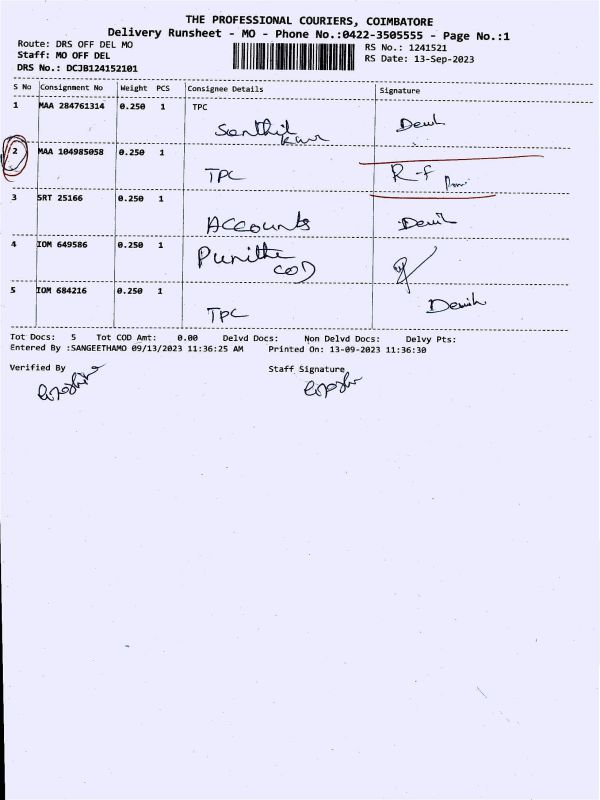 THE PROFESSIONAL COURIERS, COIMBATORE
Delivery Runsheet - MO - Phone No.:0422-3505555 - Page No.:1
Route: DRS OFF DEL MO
RS No.: 1241521
Staff: MO OFF DEL
RS Date: 13-Sep-2023
DRS No.: DCJB124152101
S No Consignment No Weight PCS Consignee Details Signature
1 MAA 284761314 0.250 1 TPC
2 MAA 104985058 0.250 1
TPC R-f
3 SRT 25166 0.250 1
Accounts
4 IOM 649586 0.250 1 Punitha
COD
5 IOM 684216 0.250 1
TPC
Tot Docs: 5 Tot COD Amt: 0.00 Delvd Docs: Non Delvd Docs: Delvy Pts:
Entered By :SANGEETHAMO 09/13/2023 11:36:25 AM Printed On: 13-09-2023 11:36:30
Verified By Staff Signature